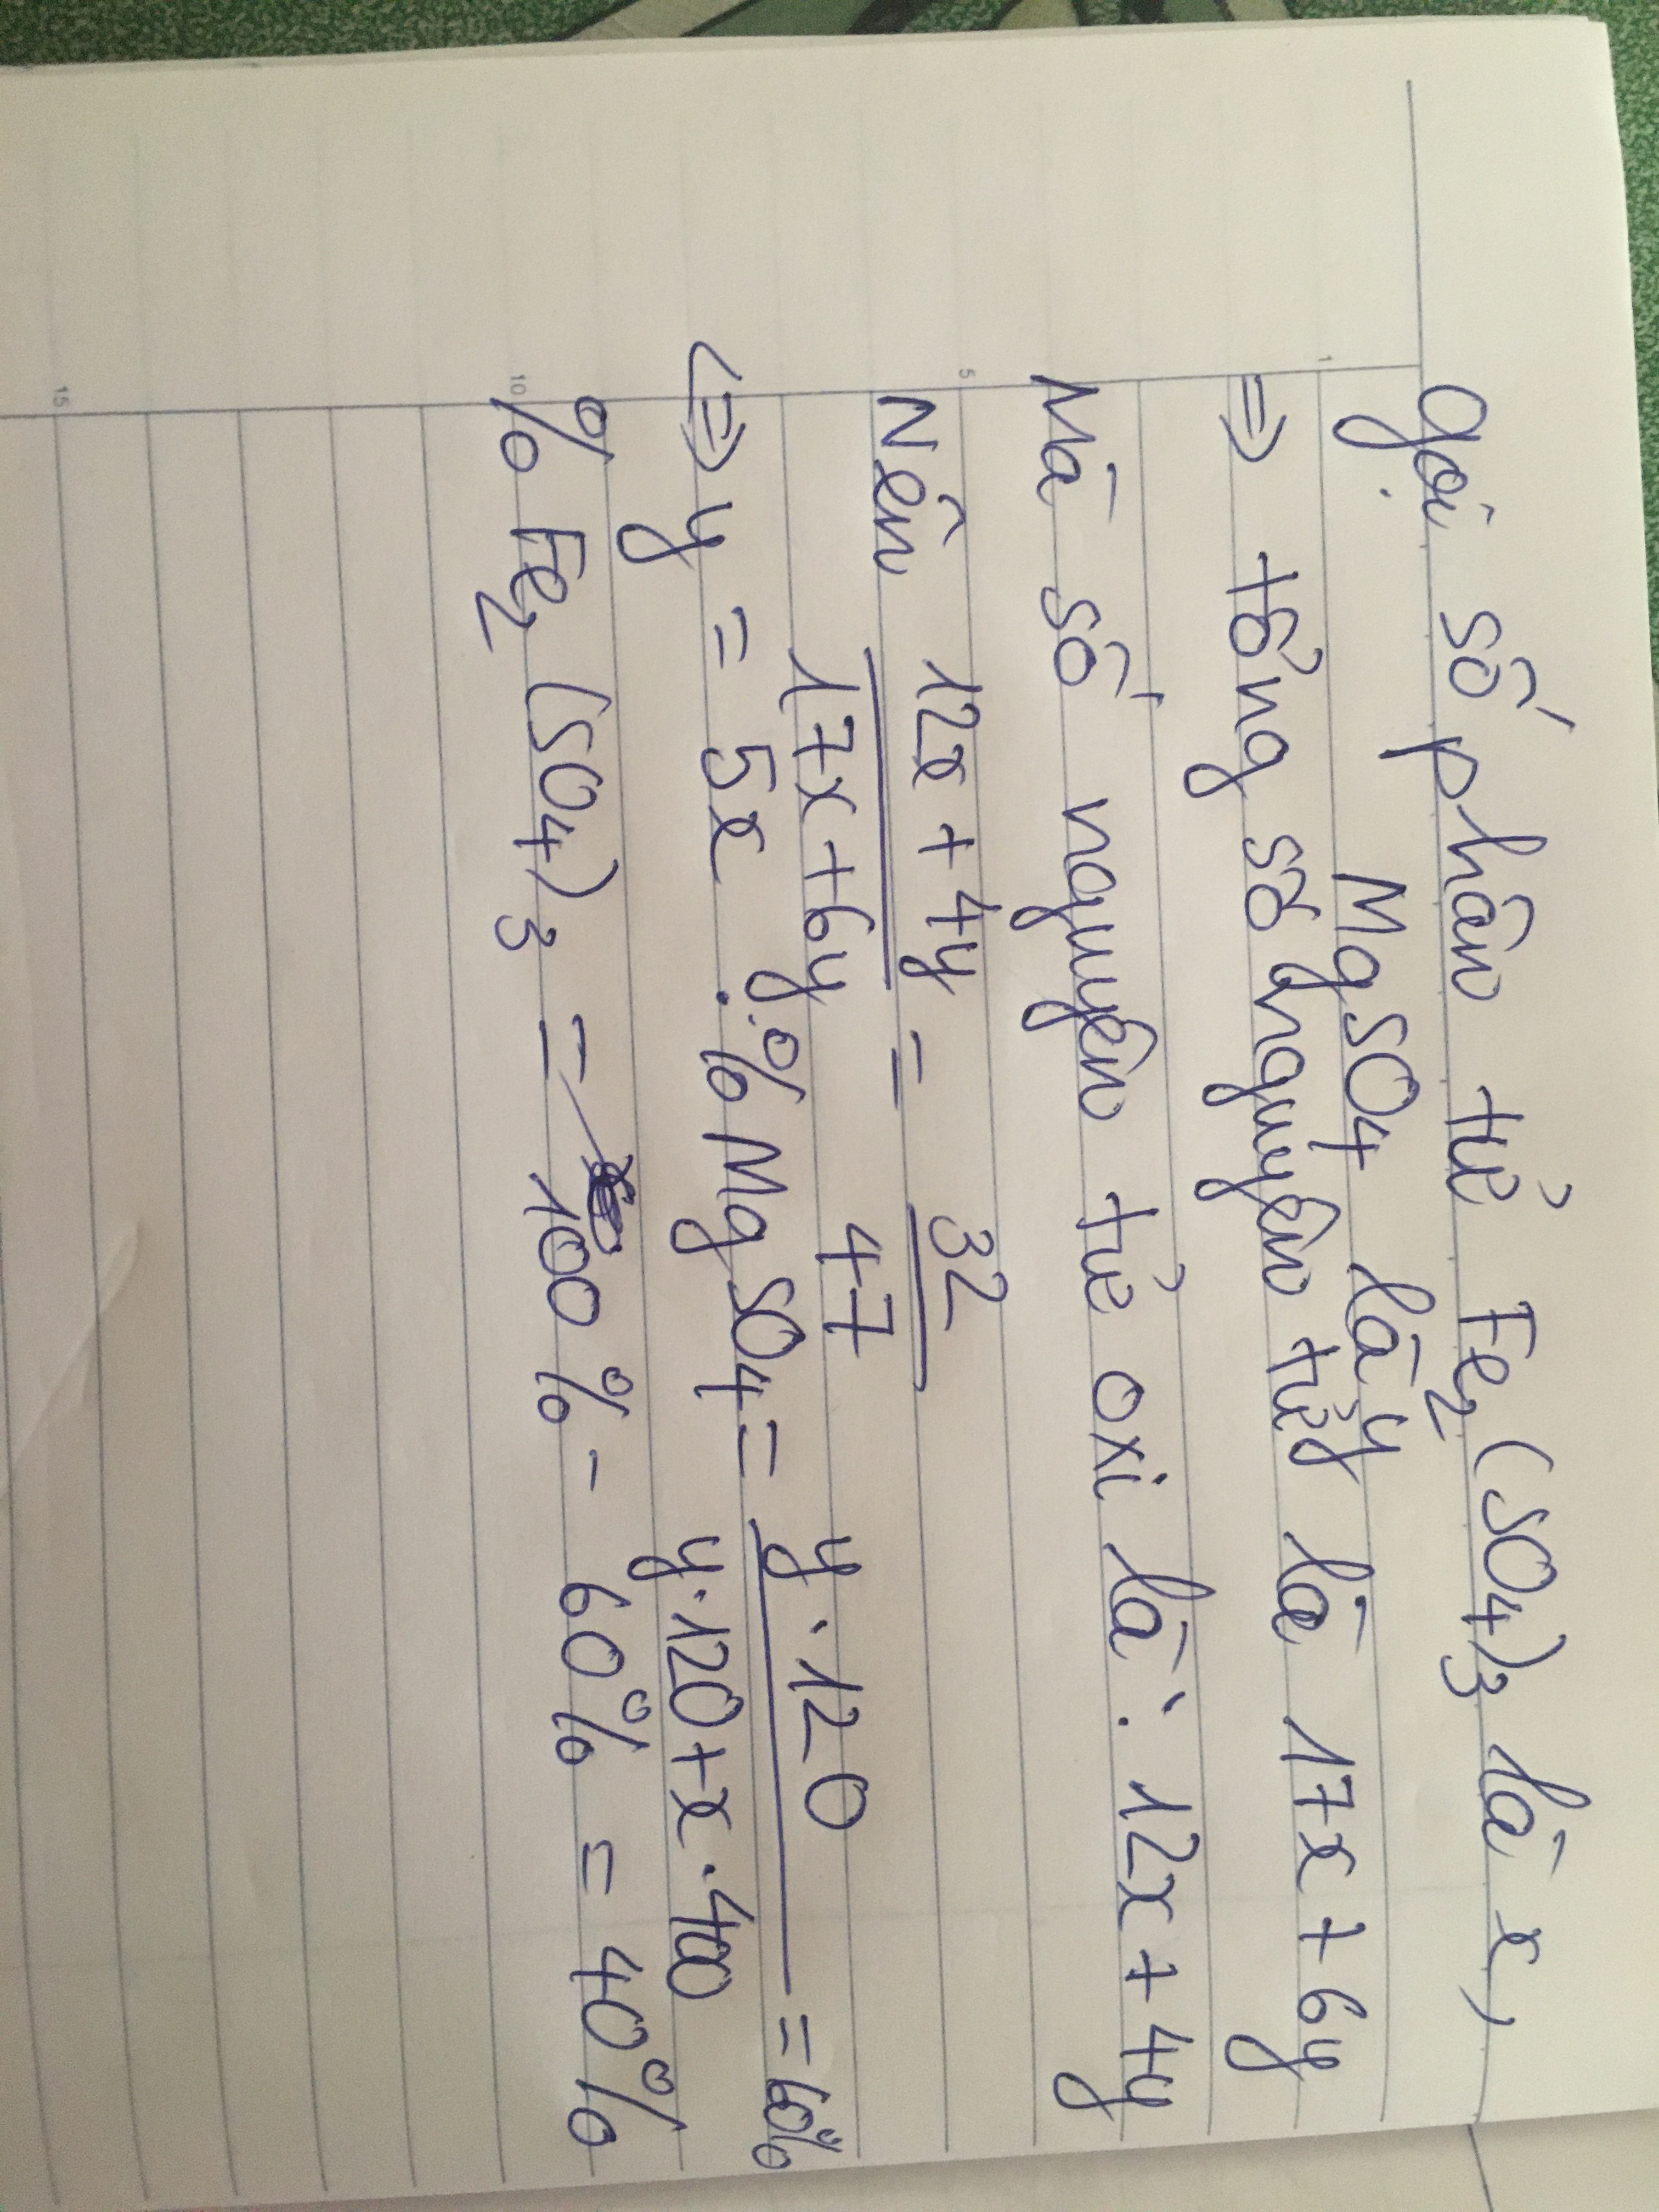 Gọi số phân tử Fe2(SO4)3 là x,
MgSO4 là y
=> tổng số nguyên tử là 17x+6y
Mà số nguyên tử oxi là: 12x+4y
Nên (12x+4y)/(17x+6y) = 32/47
<=> y = 5x. %MgSO4 = (y.120)/(y.120+x.400) = 60%
% Fe2(SO4)3 = 100% - 60% = 40%
1
5
10
15